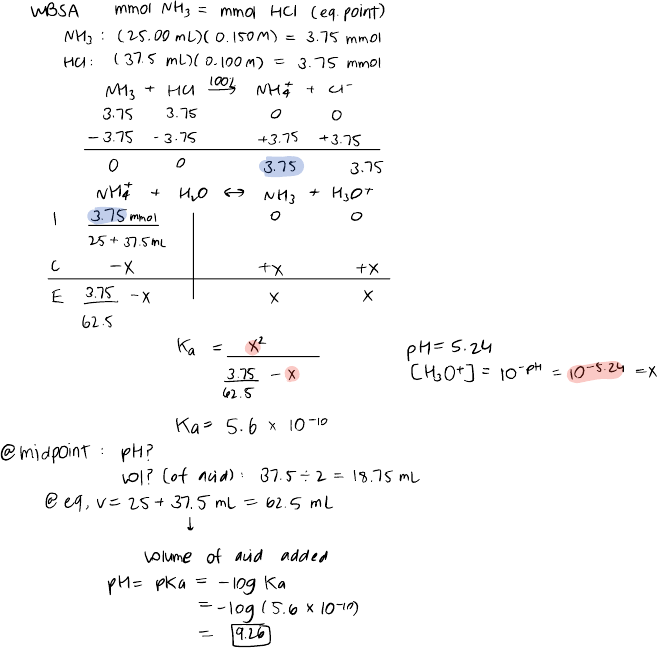 WBSA mmol NH₃ = mmol HCl (eq. point)
NH₃ : (25.00 mL)(0.150M) = 3.75 mmol
HCl : (37.5 mL)(0.100M) = 3.75 mmol
NH₃ + HCl 100%→ NH₄⁺ + Cl⁻
3.75 3.75 0 0
-3.75 -3.75 +3.75 +3.75
0 0 3.75 3.75
NH₄⁺ + H₂O ↔ NH₃ + H₃O⁺
I 3.75 mmol 0 0
25 + 37.5 mL
C -x +x +x
E 3.75 -x x x
62.5
Ka = x²
3.75 - x
62.5
pH = 5.24
[H₃O⁺] = 10^-pH = 10^-5.24 = x
Ka = 5.6 × 10⁻¹⁰
@midpoint : pH?
vol? (of acid) : 37.5 ÷ 2 = 18.75 mL
@ eq, v = 25 + 37.5 mL = 62.5 mL
↓
volume of acid added
pH = pKa = -log Ka
= -log (5.6 × 10⁻¹⁰)
= 9.26